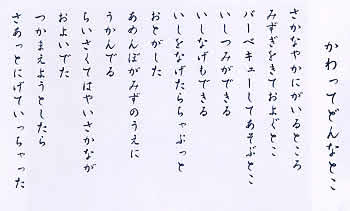 かわってどんなとこ
さかなやかにがいるところ
みずぎをきておよぐとこ
バーベキューしてあそぶとこ
いしつみができる
いしなげもできる
いしをなげたらちゃぷっと
おとがした
あめんぼがみずのうえに
うかんでる
ちいさくてはやいさかなが
およいでた
つかまえようとしたら
さあっとにげていっちゃった